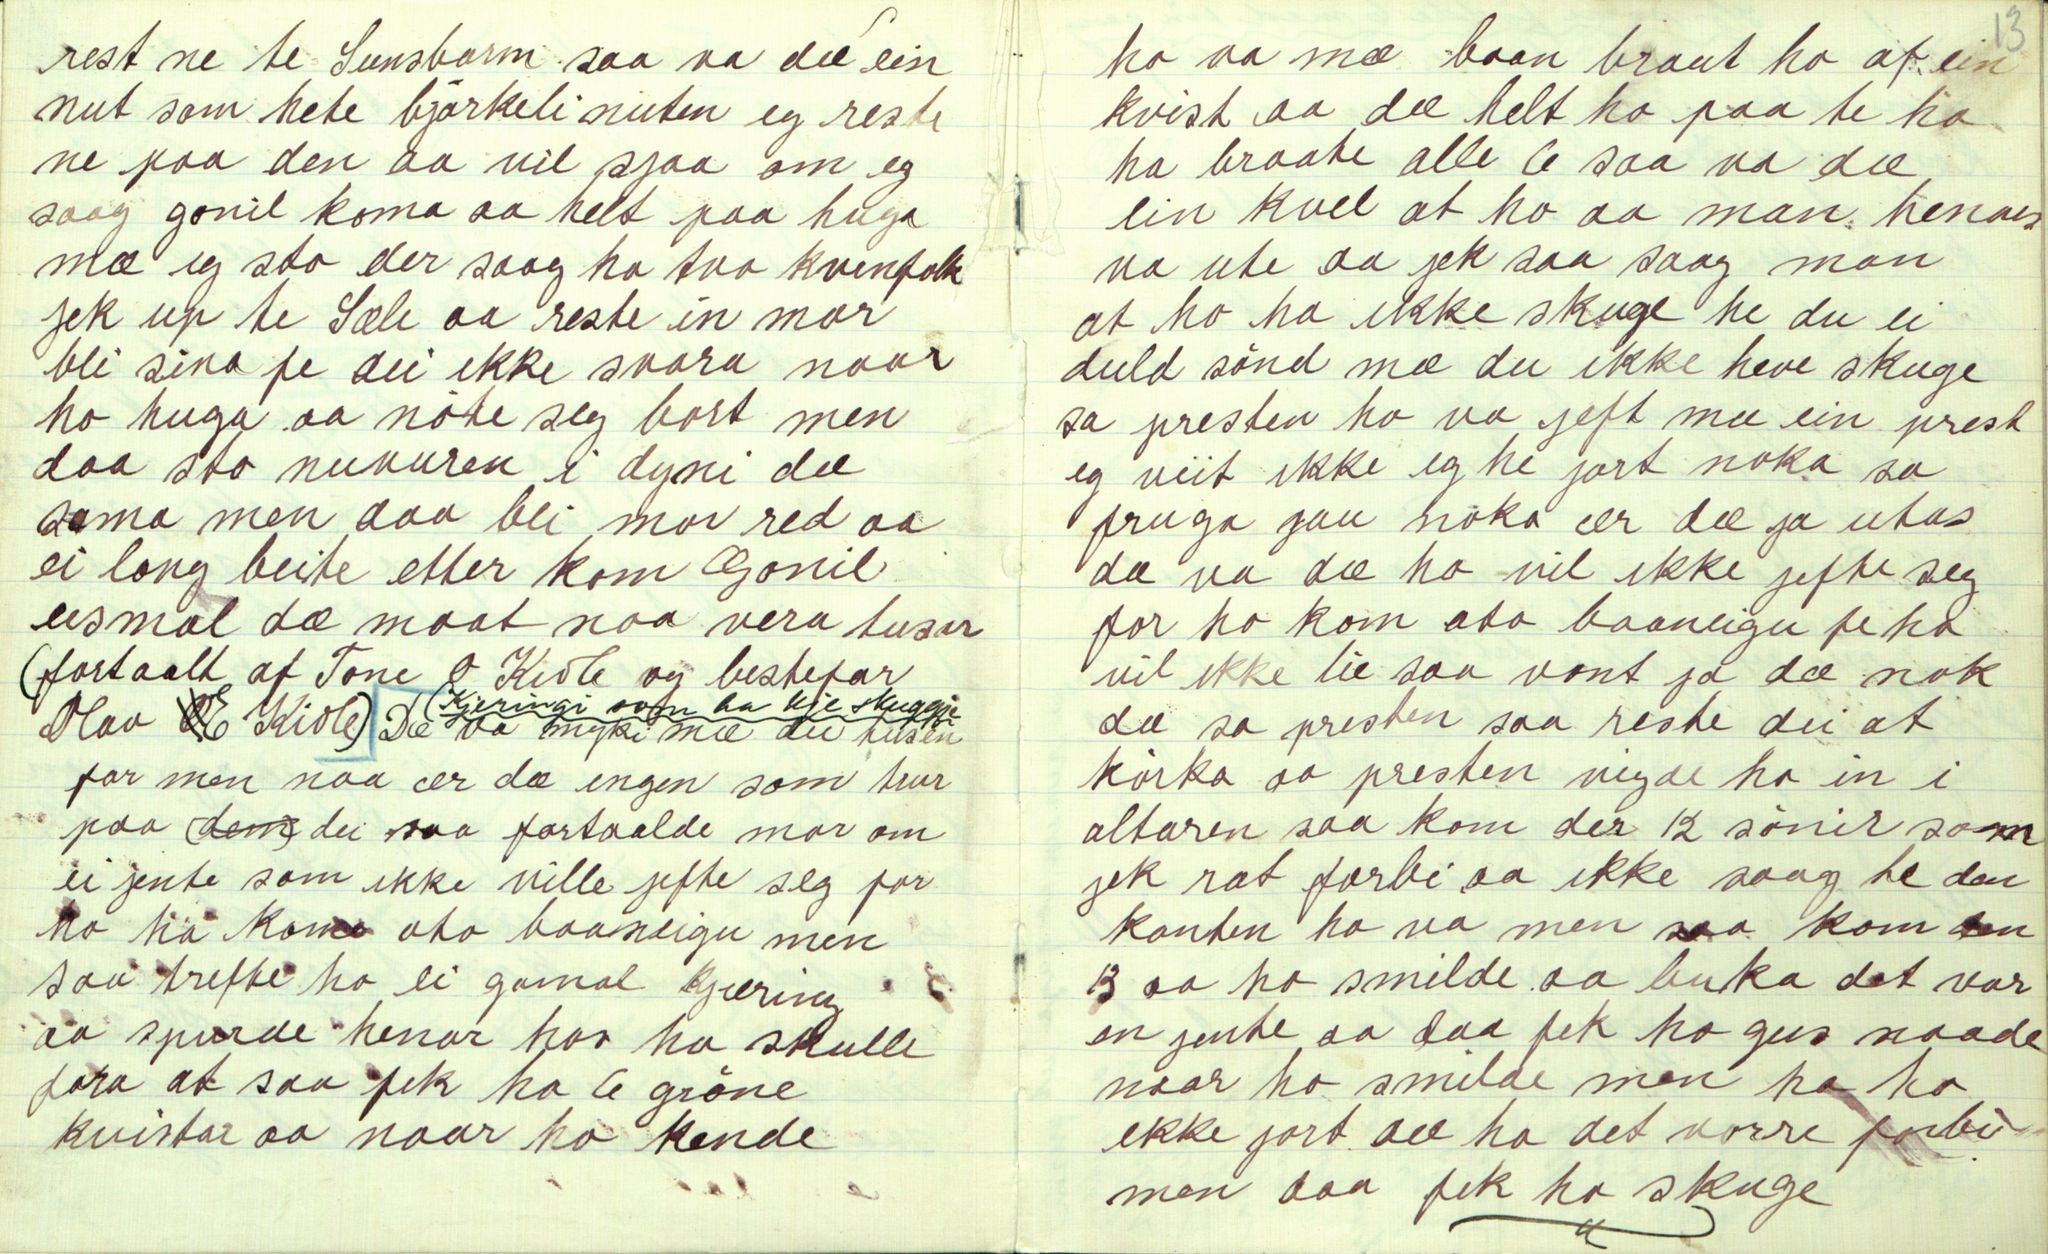 rest ne te Sunsbarm saa va dæ ein
nut som hete björkeli nuten eg reste
ne paa den aa vil sjaa om eg
saag gonil koma aa helt paa huga
mæ eg sto der saag ho tvo kvenfolk
jek up te Sæli aa reste in mor
bli sina fe dei ikke svara naar
ho huga aa nöte seg bort men
daa sto nuvuren i dyni dæ
sama men daa bli mor red aa
ei lang beite etter kom Gonil
eismal dæ maat naa vera tusar
(fortaalt af Tone O Kivle og bestefar
Olav E Kivle)
(Kjeringi som ha kje skuggje
Dæ va myki mæ dei tusen
for men naa ær dæ ingen som trur
paa (dem) dei saa fortaalde mor om
ei jente som ikke ville jefte seg for
ho ha koma ato baaneigu men
saa trefte ho ei gamal kjæring
aa spurde henar hos ho skulle
fara at saa fek ho 6 gröne
kvistar aa naar ho kende
13
ho va mæ baan braut ho af ein
kvist aa dæ helt ho paa te ho
ha braate alle 6 saa va dæ
ein kvel at ho aa man henaes
va ute aa jek saa saag man
at ho ha ikke skuge he du ei
duld sönd mæ du ikke heve skuge
sa presten ho va jeft mæ ein prest
eg veit ikke eg he jort noka sa
fruga jau noka ær dæ ja utas
dæ va dæ ho vil ikke jefte seg
for ho kom ato baaneigu fe ho
vil ikke lie saa vont ja dæ nok
dæ sa presten saa reste dei at
körka aa presten vigde ho in i
altaren saa kom der 12 sönir som
jek rat forbi aa ikke saag te den
kanten ho va men saa kom den
13 aa ho smilde aa buka det var
en jente aa daa fek ho gus naade
naar ho smilde men ha ho
ikke jort dæ ha det vorre forbi
men daa fek ho skuge